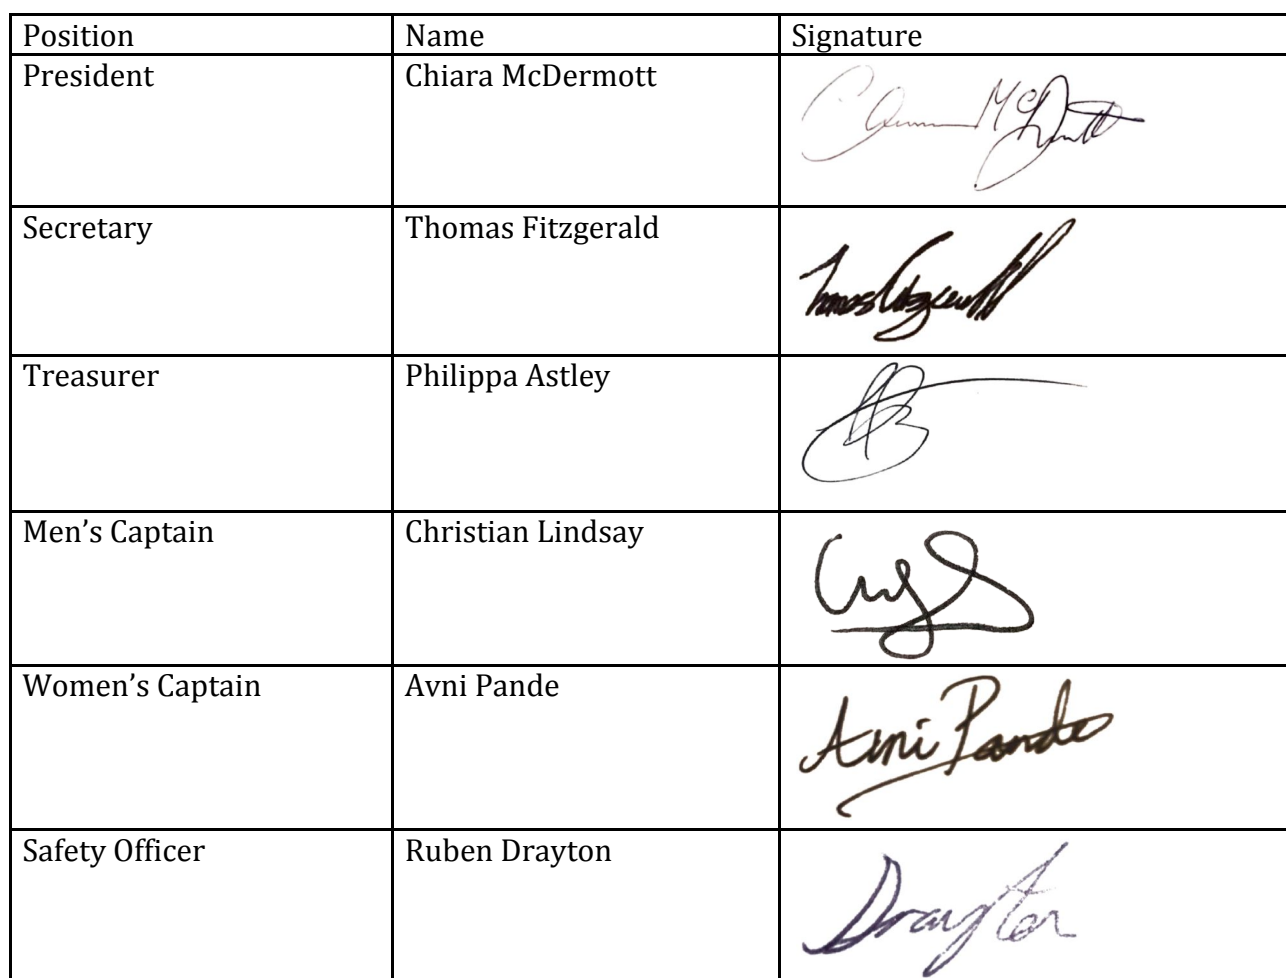 Position Name Signature
President Chiara McDermott
Secretary Thomas Fitzgerald
Treasurer Philippa Astley
Men’s Captain Christian Lindsay
Women’s Captain Avni Pande Avni Pande
Safety Officer Ruben Drayton Drayton